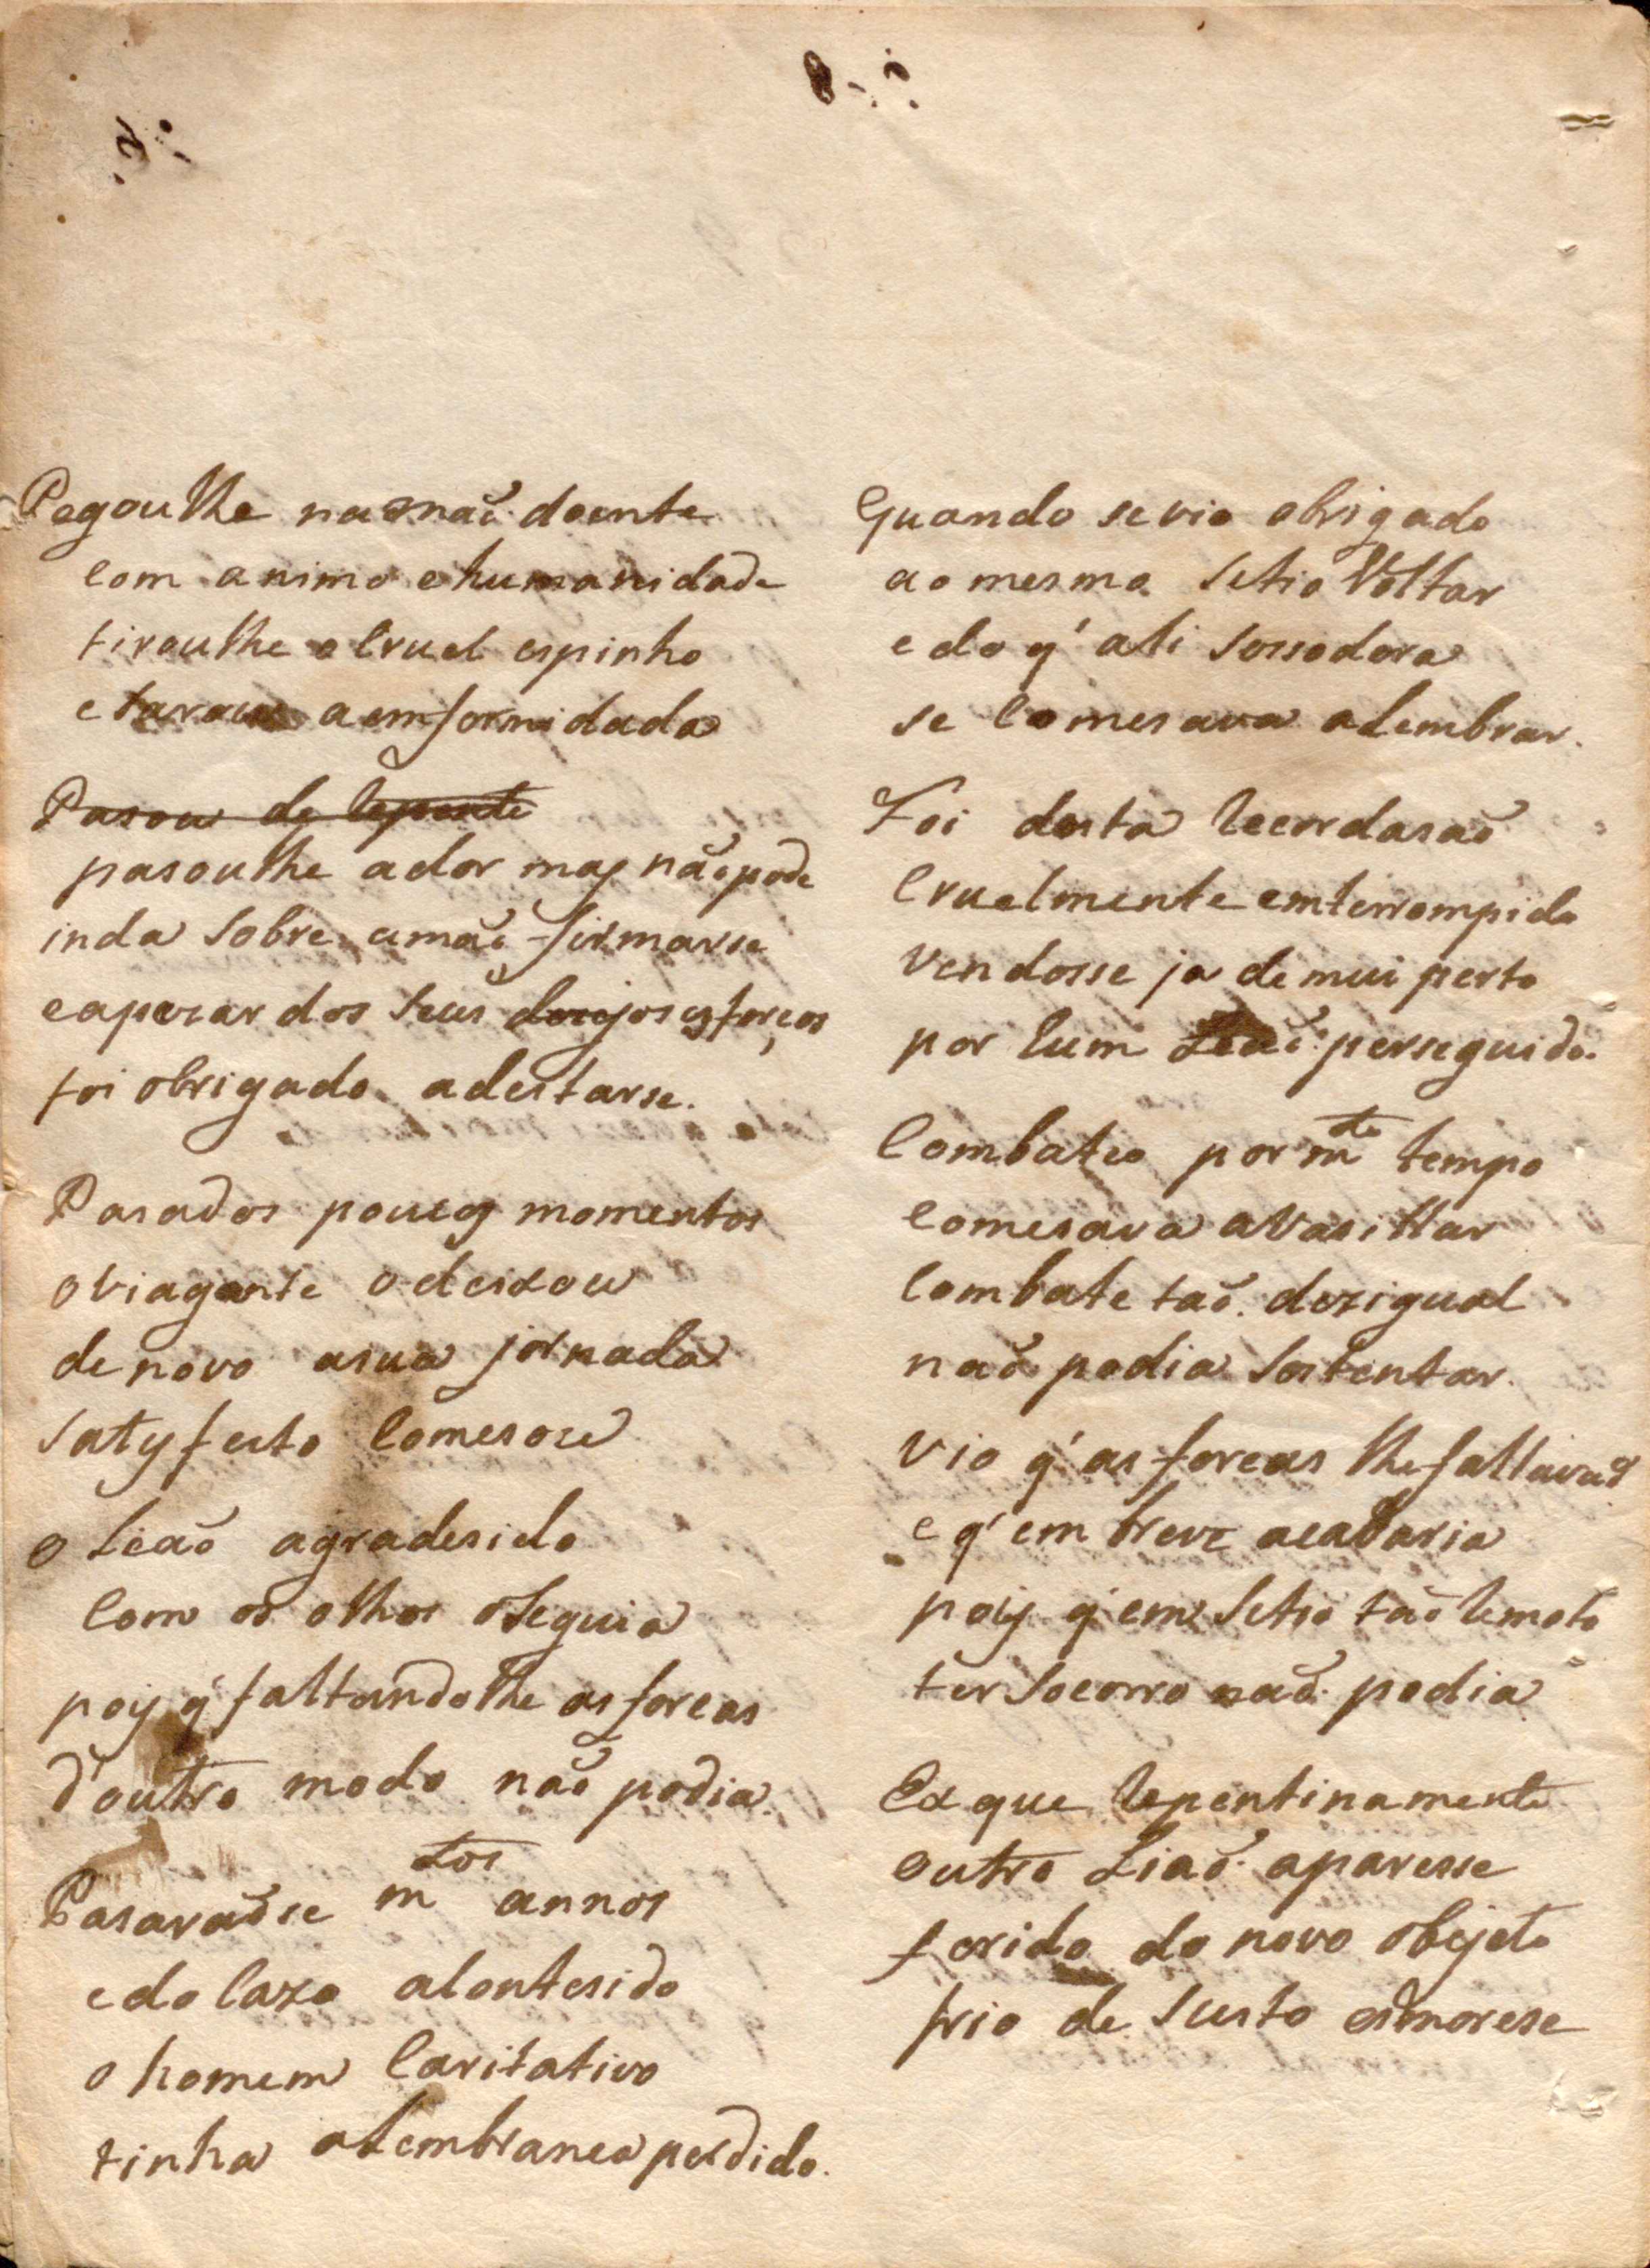 Pegoulhe na maõ doente
Com animo e humanidade
tiroulhe o Cruel espinho
e a emformidada
Pasou de Repente
pasoulhe a dor mas não pode
inda Sobre a maõ firmarse
e apezar dos Seus esforços
foi obrigado a deitarse.
Pasados poucos momentos
o viagante o deixou
de novo a sua jornada
Satysfeito Comesou
o Leaõ agradesido
Com os olhos o Seguia
poys q' faltandolhe as forcas
d'outro modo não podia.
Pasaraõse m.tos annos
e do Cazo acontesido
o homem Caritativo
tinha a Lembranca perdido.
Quando se vio obrigado
ao mesmo Setio Voltar
e do q' ali Sossodera
se Comesava a Lembrar.
Foi desta Recordasaõ
Cruelmente emterrompido
Vendosse ja de mui perto
por hum Leaõ perseguido.
Combateo por m.to tempo
Comesava a Vasillar
Combate taõ dezigual
naõ podia Sostentar.
Vio q' as forcas lhe faltavaõ
e q' em breve acabaria
poys q' em Setio taõ Remoto
ter Socorro naõ podia
Ex que Repentinamente
outro Liaõ aparesse
ferido do novo objeto
frio de Susto esmorese